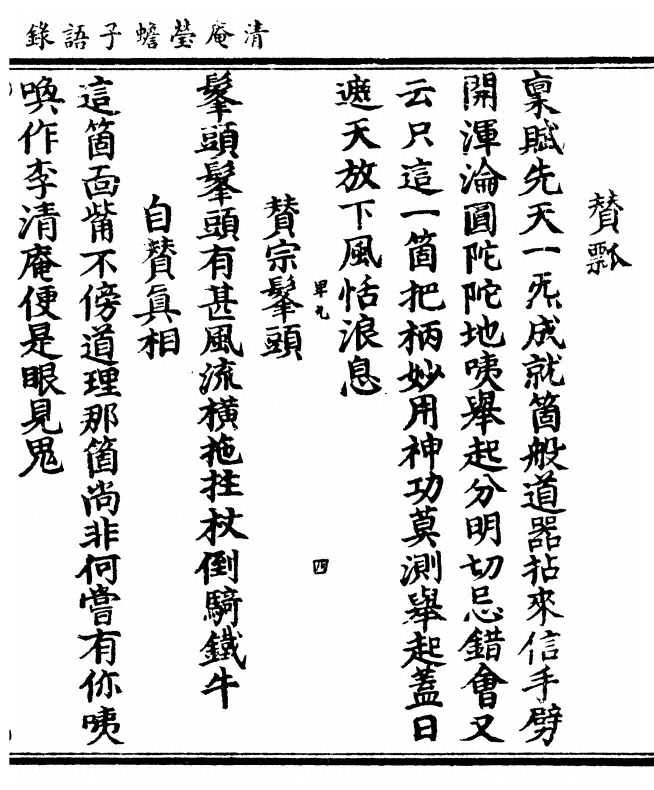 清庵瑩蟾子語錄
贊瓢
禀賦先天一炁成就箇般道器拈來信手劈
開渾淪圓陀陀地咦舉起分明切忌錯會又
云只這一箇把柄妙用神功莫測舉起蓋日
遮天放下風恬浪息
畢九
四
贊宗髼頭
髼頭髼頭有甚風流橫拖拄杖倒騎鐵牛
自贊眞相
這箇面觜不傍道理那箇尚非何嘗有你咦
喚作李清庵便是眼見鬼